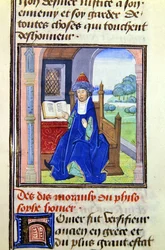 non deffier iustice a son
ennemy et soy garder de
toutes choses qui touchent
deshonneur.
Des dis moraulx du philo
sophe homer
Omer fut versifieur
ancien en grece et
du plus grant estat